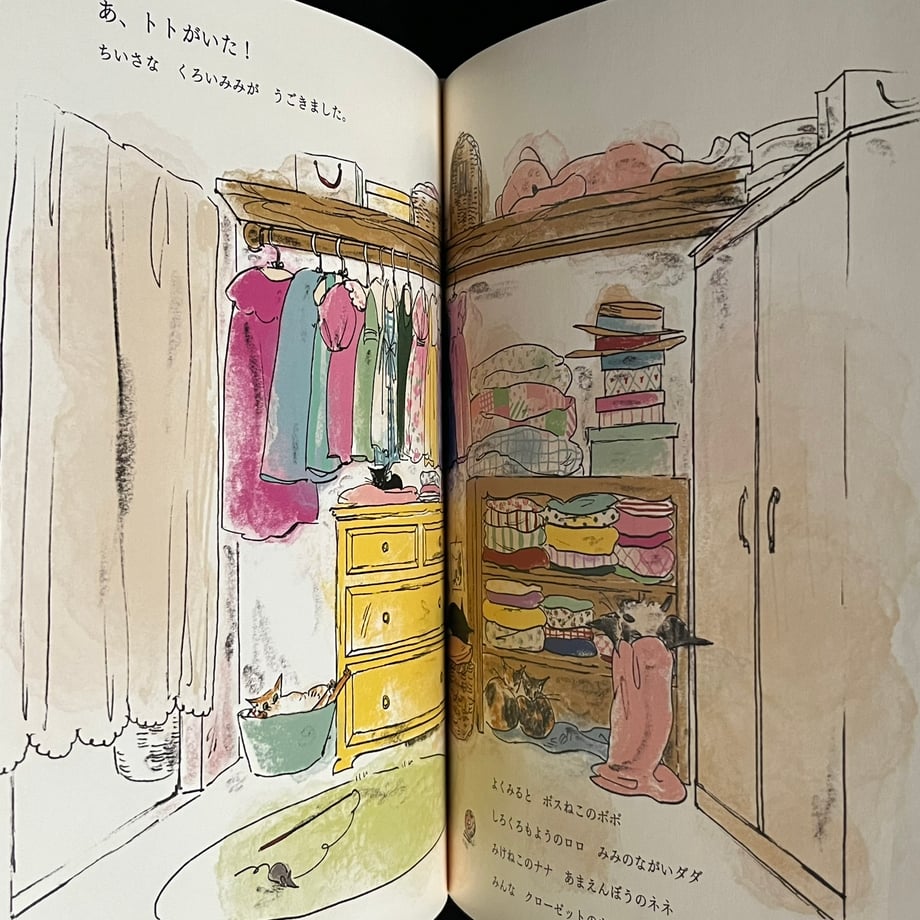 あ、トトがいた！
ちいさな　くろいみみが　うごきました。
よくみると　ボスねこのボボ
しろくろもようのロロ　みみのながいダダ
みけねこのナナ　あまえんぼうのネネ
みんな　クローゼットの